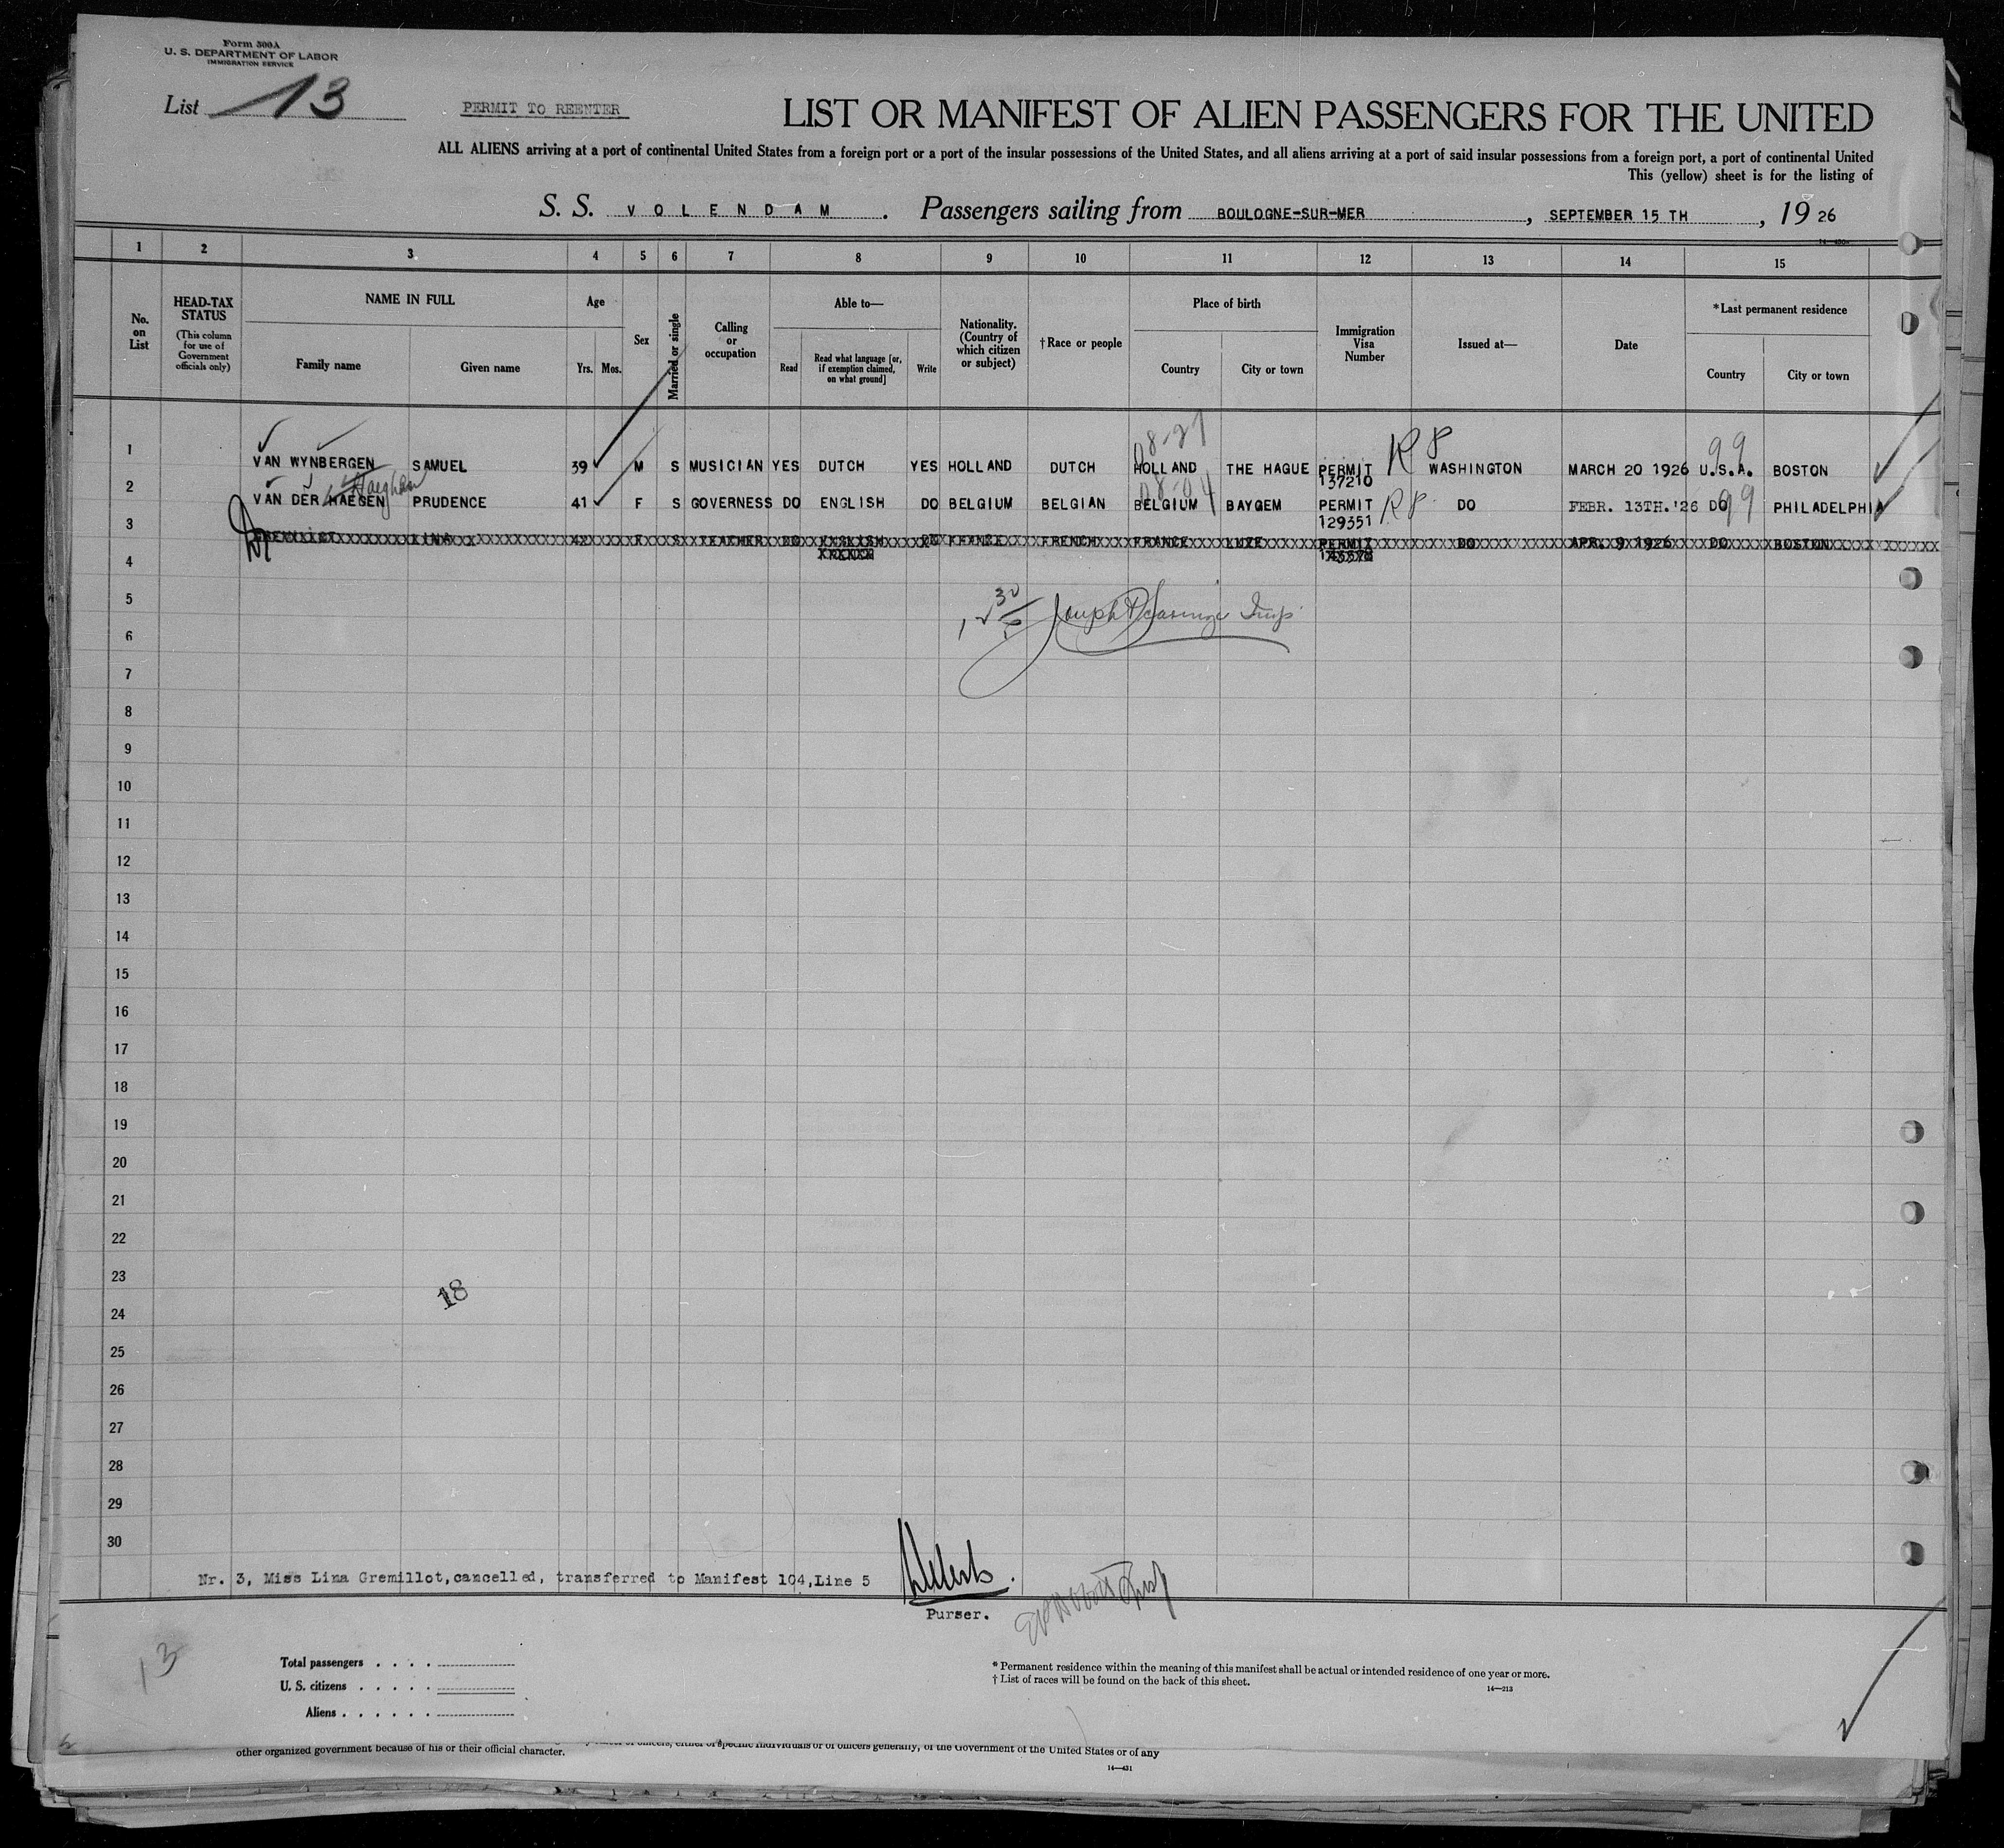 Form 500A
U. S. DEPARTMENT OF LABOR
IMMIGRATION SERVICE
List 13
PERMIT TO REENTER
LIST OR MANIFEST OF ALIEN PASSENGERS FOR THE UNITED
ALL ALIENS arriving at a port of continental United States from a foreign port or a port of the insular possessions of the United States, and all aliens arriving at a port of said insular possessions from a foreign port, a port of continental United
This (yellow) sheet is for the listing of
S. S. VOLENDAM . Passengers sailing from BOULOGNE-SUR-MER , SEPTEMBER 15 TH , 19 26
1 2 3 4 5 6 7 8 9 10 11 12 13 14 15
No. on List
HEAD-TAX STATUS (This column for use of Government officials only)
NAME IN FULL
Family name
Given name
Age
Yrs. Mos.
Sex
Married or single
Calling or occupation
Able to—
Read
Read what language [or, if exemption claimed, on what ground]
Write
Nationality. (Country of which citizen or subject)
†Race or people
Place of birth
Country
City or town
Immigration Visa Number
Issued at—
Date
*Last permanent residence
Country
City or town
08-27 R8 99
1 VAN WYNBERGEN SAMUEL 39 M S MUSICIAN YES DUTCH YES HOLLAND DUTCH HOLLAND THE HAGUE PERMIT 137210 WASHINGTON MARCH 20 1926 U.S.A. BOSTON
Haeghen 08-04 R8 99
2 VAN DER HAEGEN PRUDENCE 41 F S GOVERNESS DO ENGLISH DO BELGIUM BELGIAN BELGIUM BAYGEM PERMIT 129351 DO FEBR. 13TH.'26 DO PHILADELPHIA
3 GREMILLOT LINA 42 F S TEACHER DO ENGLISH DO FRANCE FRENCH FRANCE LUZE PERMIT DO APR. 9 1926 DO BOSTON
4
5
6
7
8
9
10
11
12
13
14
15
16
17
18
19
20
21
22
23
18
24
25
26
27
28
29
30
Nr. 3, Miss Lina Gremillot,cancelled, transferred to Manifest 104,Line 5
Purser.
13
Total passengers . . . .
U. S. citizens . . . . .
Aliens . . . . . .
* Permanent residence within the meaning of this manifest shall be actual or intended residence of one year or more.
† List of races will be found on the back of this sheet.
14—213
officers, either of specific individuals or of officers generally, of the Government of the United States or of any
other organized government because of his or their official character.
14—431